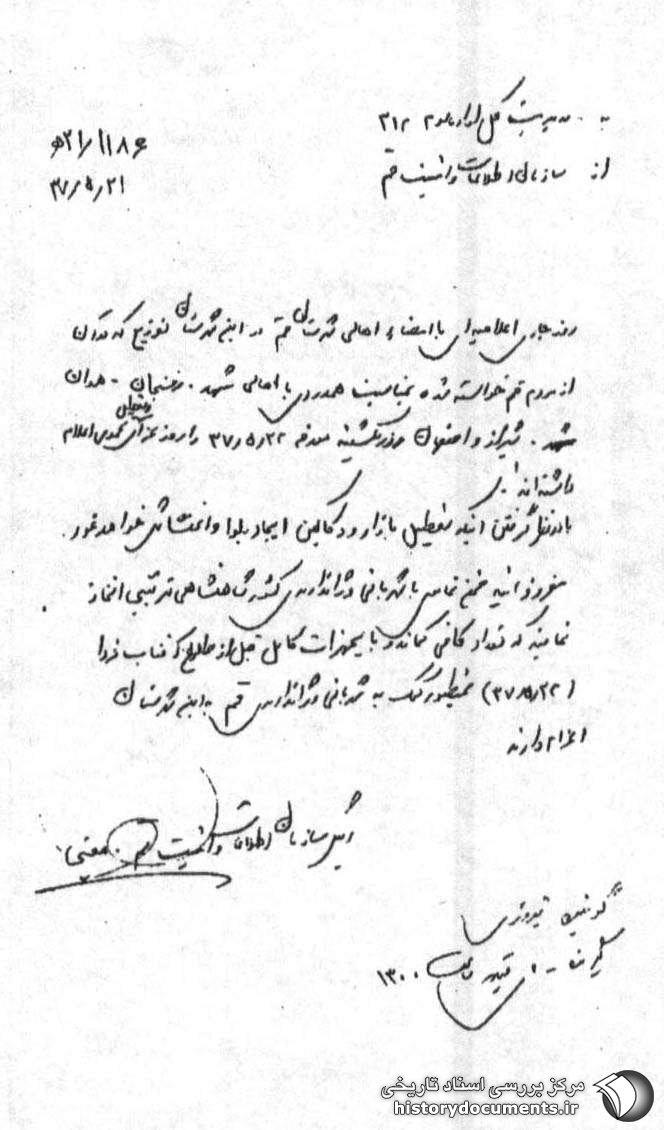 به: مدیریت کل اداره سوم ۳۱۲
از: سازمان اطلاعات و امنیت قم
۲۱/۱۱۸۶ﻫ
۳۷/۵/۲۱
روز جاری اعلامیه‌ای با امضاء اهالی شهرستان قم در این شهرستان توزیع که در آن
از مردم قم خواسته شده بمناسبت همدردی با اهالی مشهد. رفسنجان - همدان
شیراز و اصفهان روز یکشنبه مورخه ۳۷/۵/۲۲ را روز عزای عمومی اعلام
و تعطیل
داشته‌اند.
با در نظر گرفتن اینکه تعطیل بازار و دکاکین ایجاد بلوا و اغتشاش خواهد نمود.
مقرر فرمائید ضمن تماس با شهربانی و ژاندارمری کشور شاهنشاهی ترتیبی اتخاذ
نمایند که تعداد کافی کماندو با تجهیزات کامل قبل از طلوع آفتاب فردا
(۳۷/۵/۲۲) بمنظور کمک به شهربانی و ژاندارمری قم باین شهرستان
اعزام دارند
رئیس سازمان اطلاعات و امنیت قم. معینی
گوینده
گیرنده - ۱۳۰۰
مرکز بررسی اسناد تاریخی
historydocuments.ir